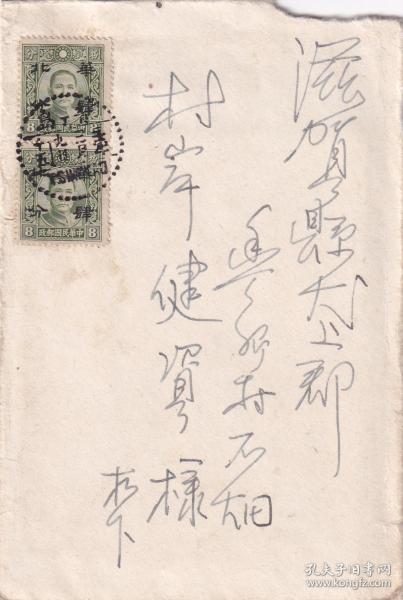 滋賀縣犬上郡
豊郷村石畑
村岸健資様
机下
華北
肆分
8 中華民國郵政 8
8 中華民國郵政 8
TSINGTAO
孔夫子旧书网
www.kongfz.com